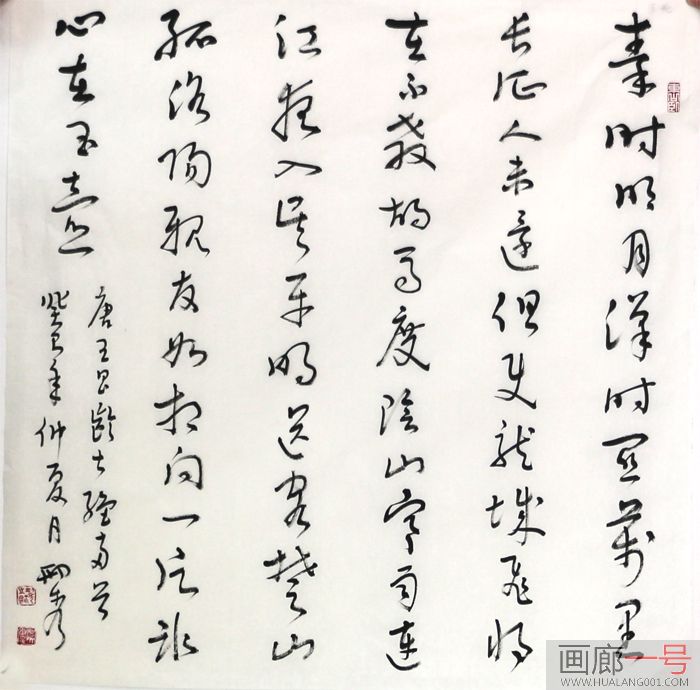 秦时明月漢时关萬里
长征人未還但使龍城飛将
在不教胡马度陰山寒雨连
江夜入吴平明送客楚山
孤洛阳親友如相问一片冰
心在玉壺
唐王昌齡七绝两首
癸巳年仲夏月
画廊一号
WWW.HUALANG001.COM